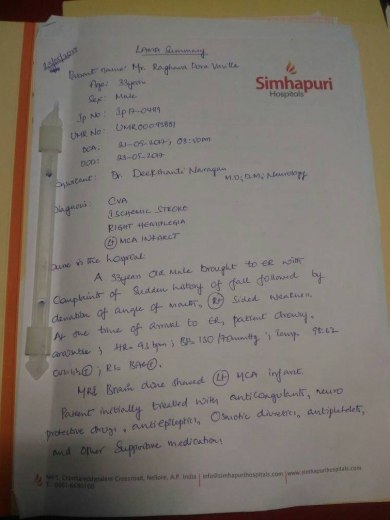 LAMA Summary
Patient Name: Mr. Raghava Dora
Age: 33years
Sex: Male
Simhapuri
Hospitals
Ip No: Ip17-0489
UMR No: UMR00093881
DOA: 21-05-2017,
DOD: 23-05-2017
Consultant: Dr. Narayan M.D; D.M; Neurology
Diagnosis: CVA
ISCHEMIC STROKE
RIGHT HEMIPLEGIA
(Lt) MCA INFARCT
in the hospital
A 33years old Male brought to ER with
Complaints of Sudden history of fall followed by
deviation of angle of mouth, (Rt) Sided weakness.
At the time of arrival to ER, patient drowsy,
arousable; HR= 93 bpm; BP= 130/70mmHg; Temp 98.6
MRI Brain done showed (Lt) MCA infarct.
Patient initially treated with anticoagulants, neuro
protective drugs, antiepileptics, Osmotic diuretics, antiplatelets,
and other Supportive medication.
Crossroad, Nellore, A.P. India | info@simhapurihospitals.com | www.simhapurihospitals.com